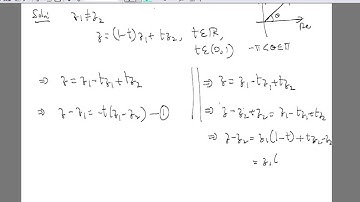 Soln: z₁≠z₂
z=(1-t)z₁+tz₂, t∈ℝ,
t∈(0,1)
θ
Re
-π<θ≤π
⇒ z=z₁-tz₁+tz₂
⇒ z-z₁=-t(z₁-z₂) —①
⇒ z=z₁-tz₁+tz₂
⇒ z-z₂+z₂=z₁-tz₁+tz₂
⇒ z-z₂=z₁(1-t)+tz₂-z₂
=z₁(